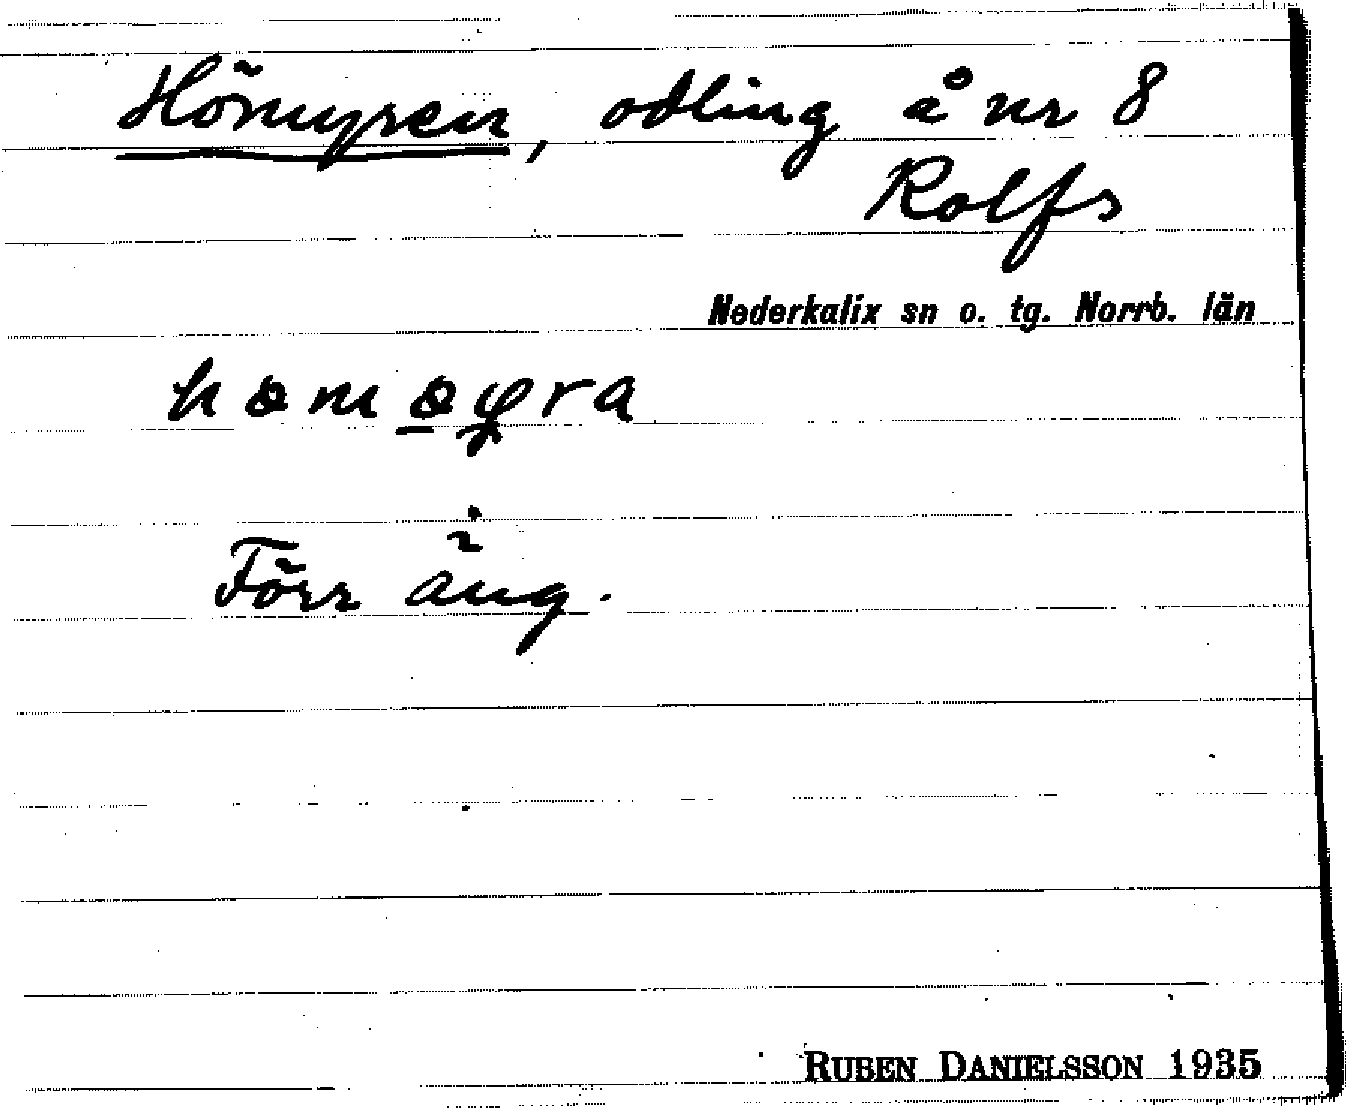 Hömyren, odling å nr 8
Rolfs
Nederkalix sn o. tg. Norrb. län
Förr äng.
RUBEN DANIELSSON 1935